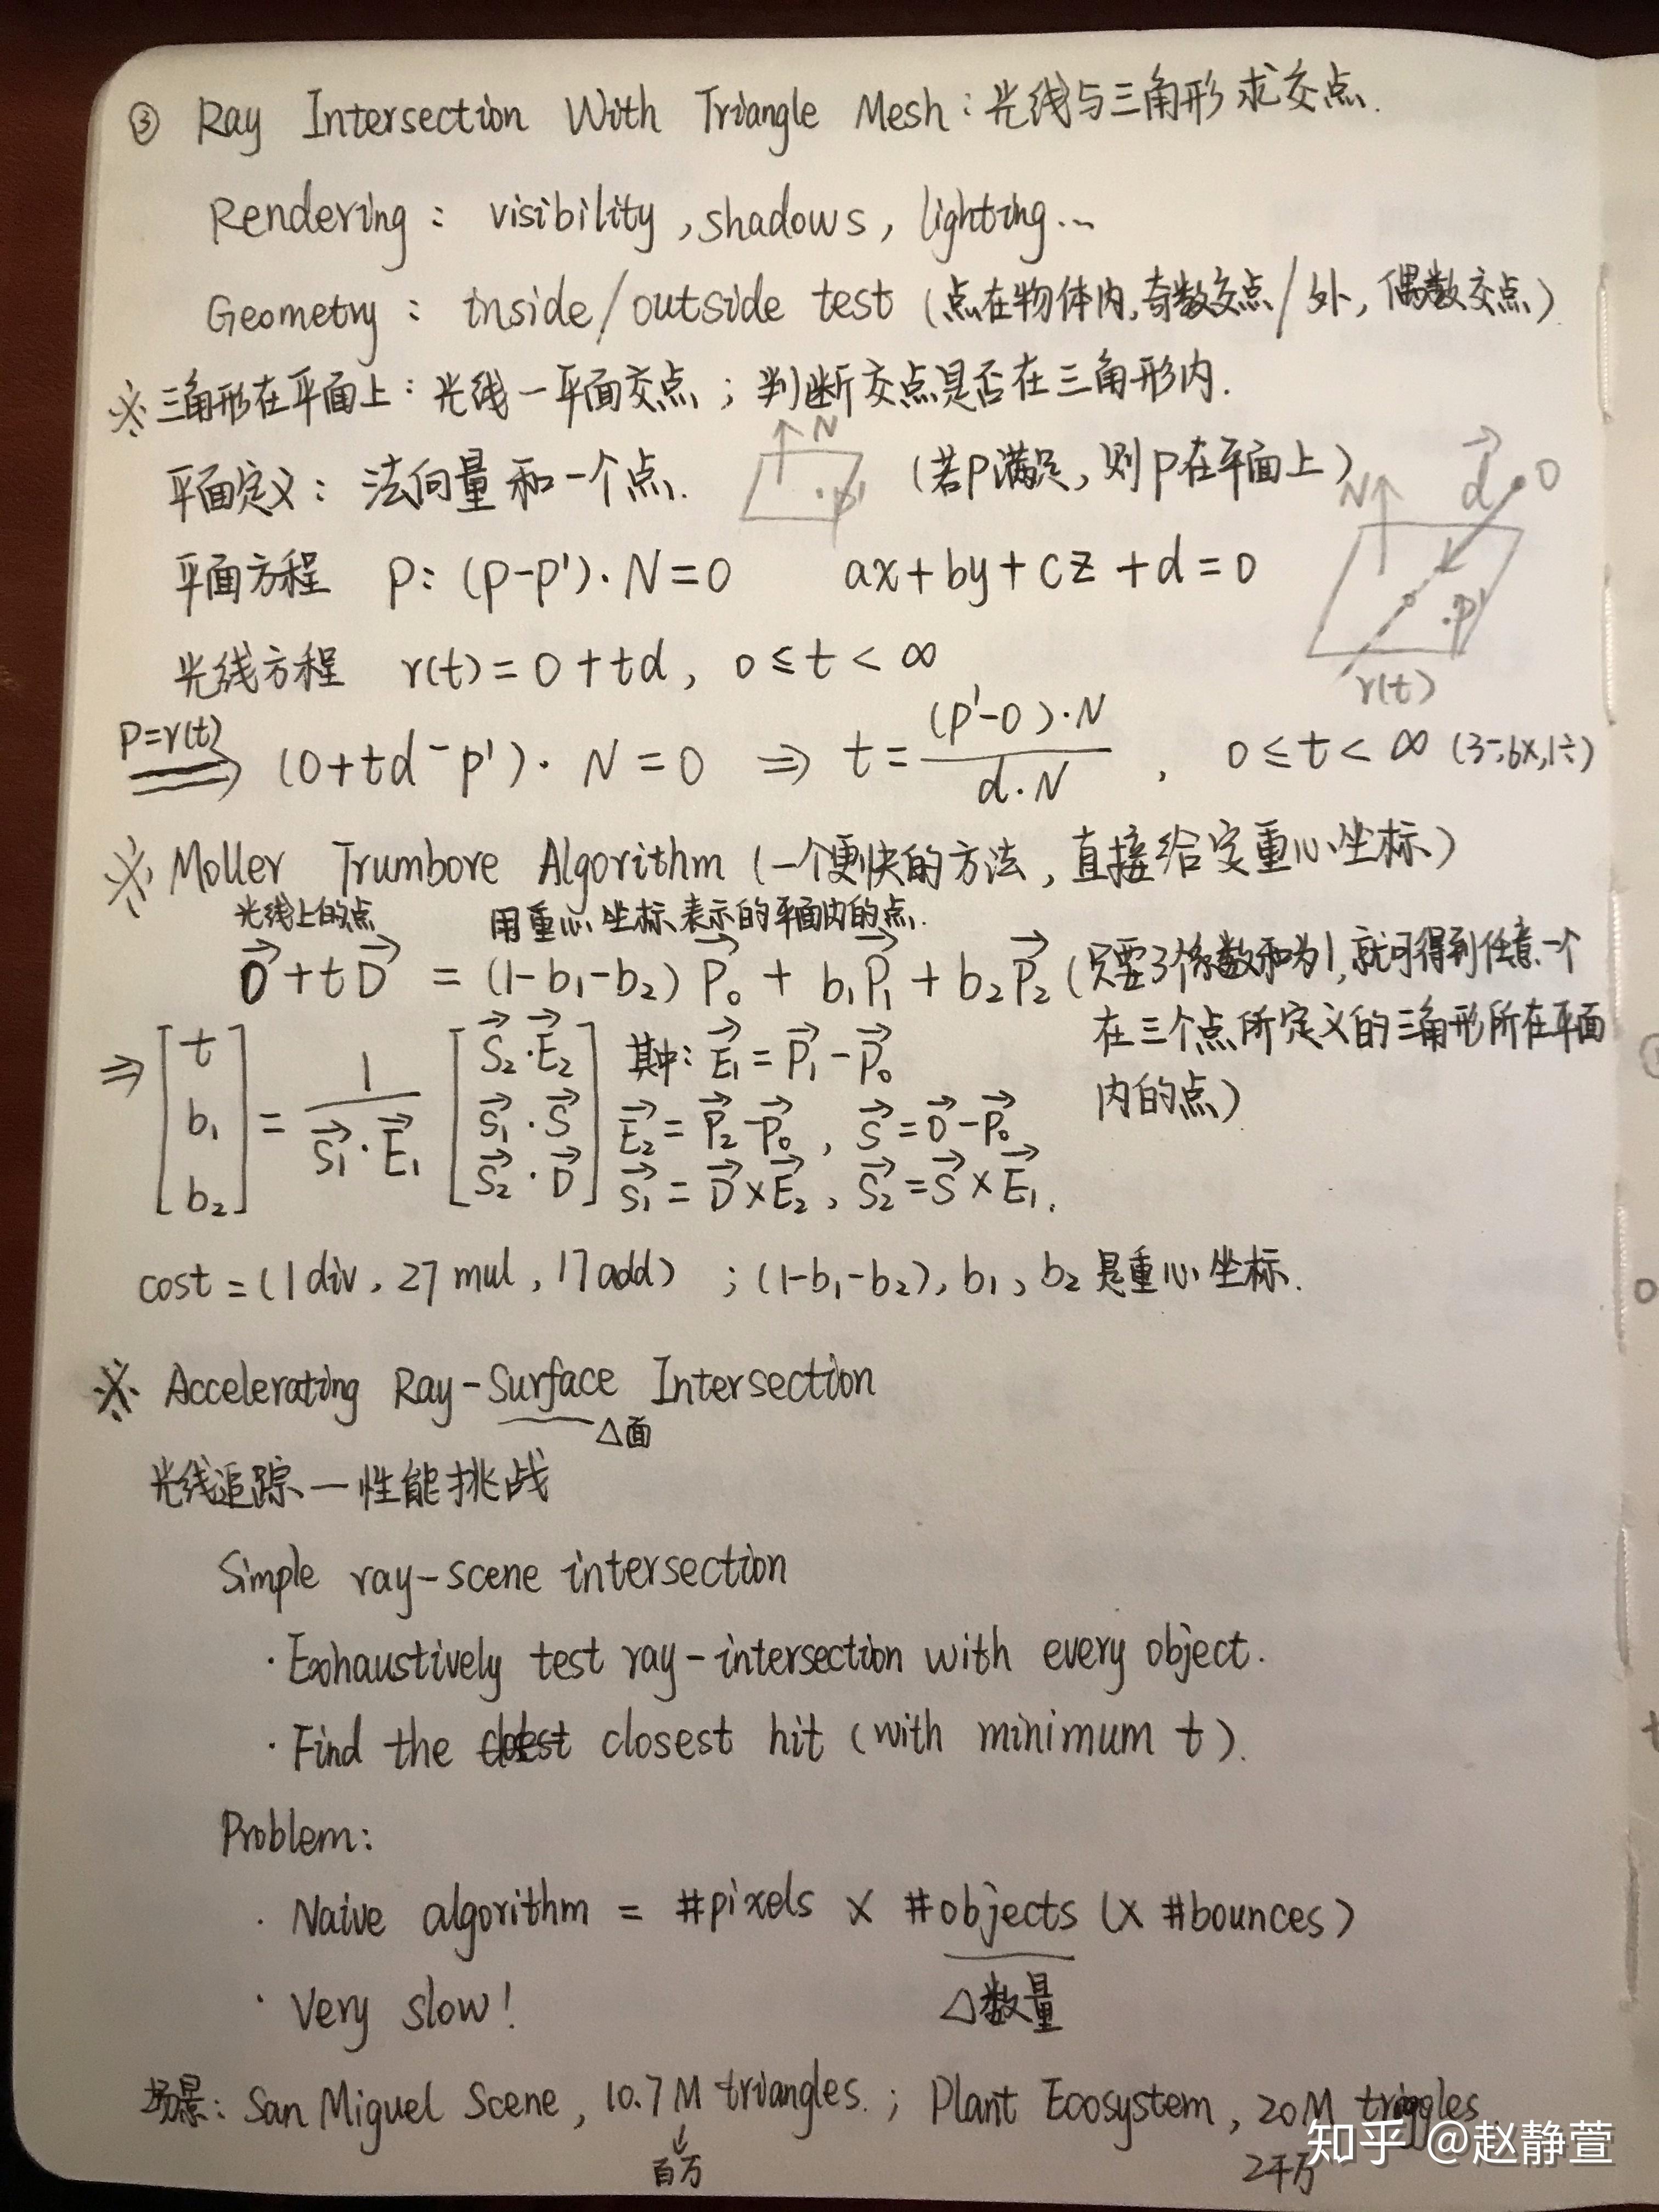 ③ Ray Intersection With Triangle Mesh：光线与三角形求交点.
Rendering： visibility , shadows , lighting...
Geometry： inside/outside test (点在物体内,奇数交点/外,偶数交点)
※三角形在平面上：光线-平面交点；判断交点是否在三角形内.
平面定义：法向量和一个点. N p' (若P满足,则P在平面上)
N d⃗ O
平面方程 P：(P-P')·N=0 ax+by+cz+d=0
p'
光线方程 r(t)=O+td, 0≤t<∞
r(t)
P=r(t) ⇒ (O+td-p')·N=0 ⇒ t=(p'-O)·N / d·N , 0≤t<∞ (3-,6×,1÷)
※ Moller Trumbore Algorithm (一个更快的方法,直接给定重心坐标)
光线上的点 用重心坐标表示的平面内的点.
O⃗+tD⃗ = (1-b₁-b₂)P⃗₀ + b₁P⃗₁ + b₂P⃗₂ (只要3个系数和为1,就可得到任意一个
在三个点所定义的三角形所在平面
内的点)
⇒ [t b₁ b₂] = 1 / S⃗₁·E⃗₁ [S⃗₂·E⃗₂ S⃗₁·S⃗ S⃗₂·D⃗] 其中：E⃗₁=P⃗₁-P⃗₀
E⃗₂=P⃗₂-P⃗₀ , S⃗=O⃗-P⃗₀
S⃗₁=D⃗×E⃗₂ , S⃗₂=S⃗×E⃗₁.
cost=(1div, 27mul, 17add) ；(1-b₁-b₂), b₁、b₂是重心坐标.
※ Accelerating Ray-Surface Intersection
△面
光线追踪-性能挑战
Simple ray-scene intersection
·Exhaustively test ray-intersection with every object.
·Find the closest hit (with minimum t).
Problem：
·Naive algorithm = #pixels × #objects (× #bounces)
△数量
·Very slow!
场景：San Miguel Scene, 10.7M triangles.；Plant Ecosystem, 20M
百万
2千万
知乎 @赵静萱